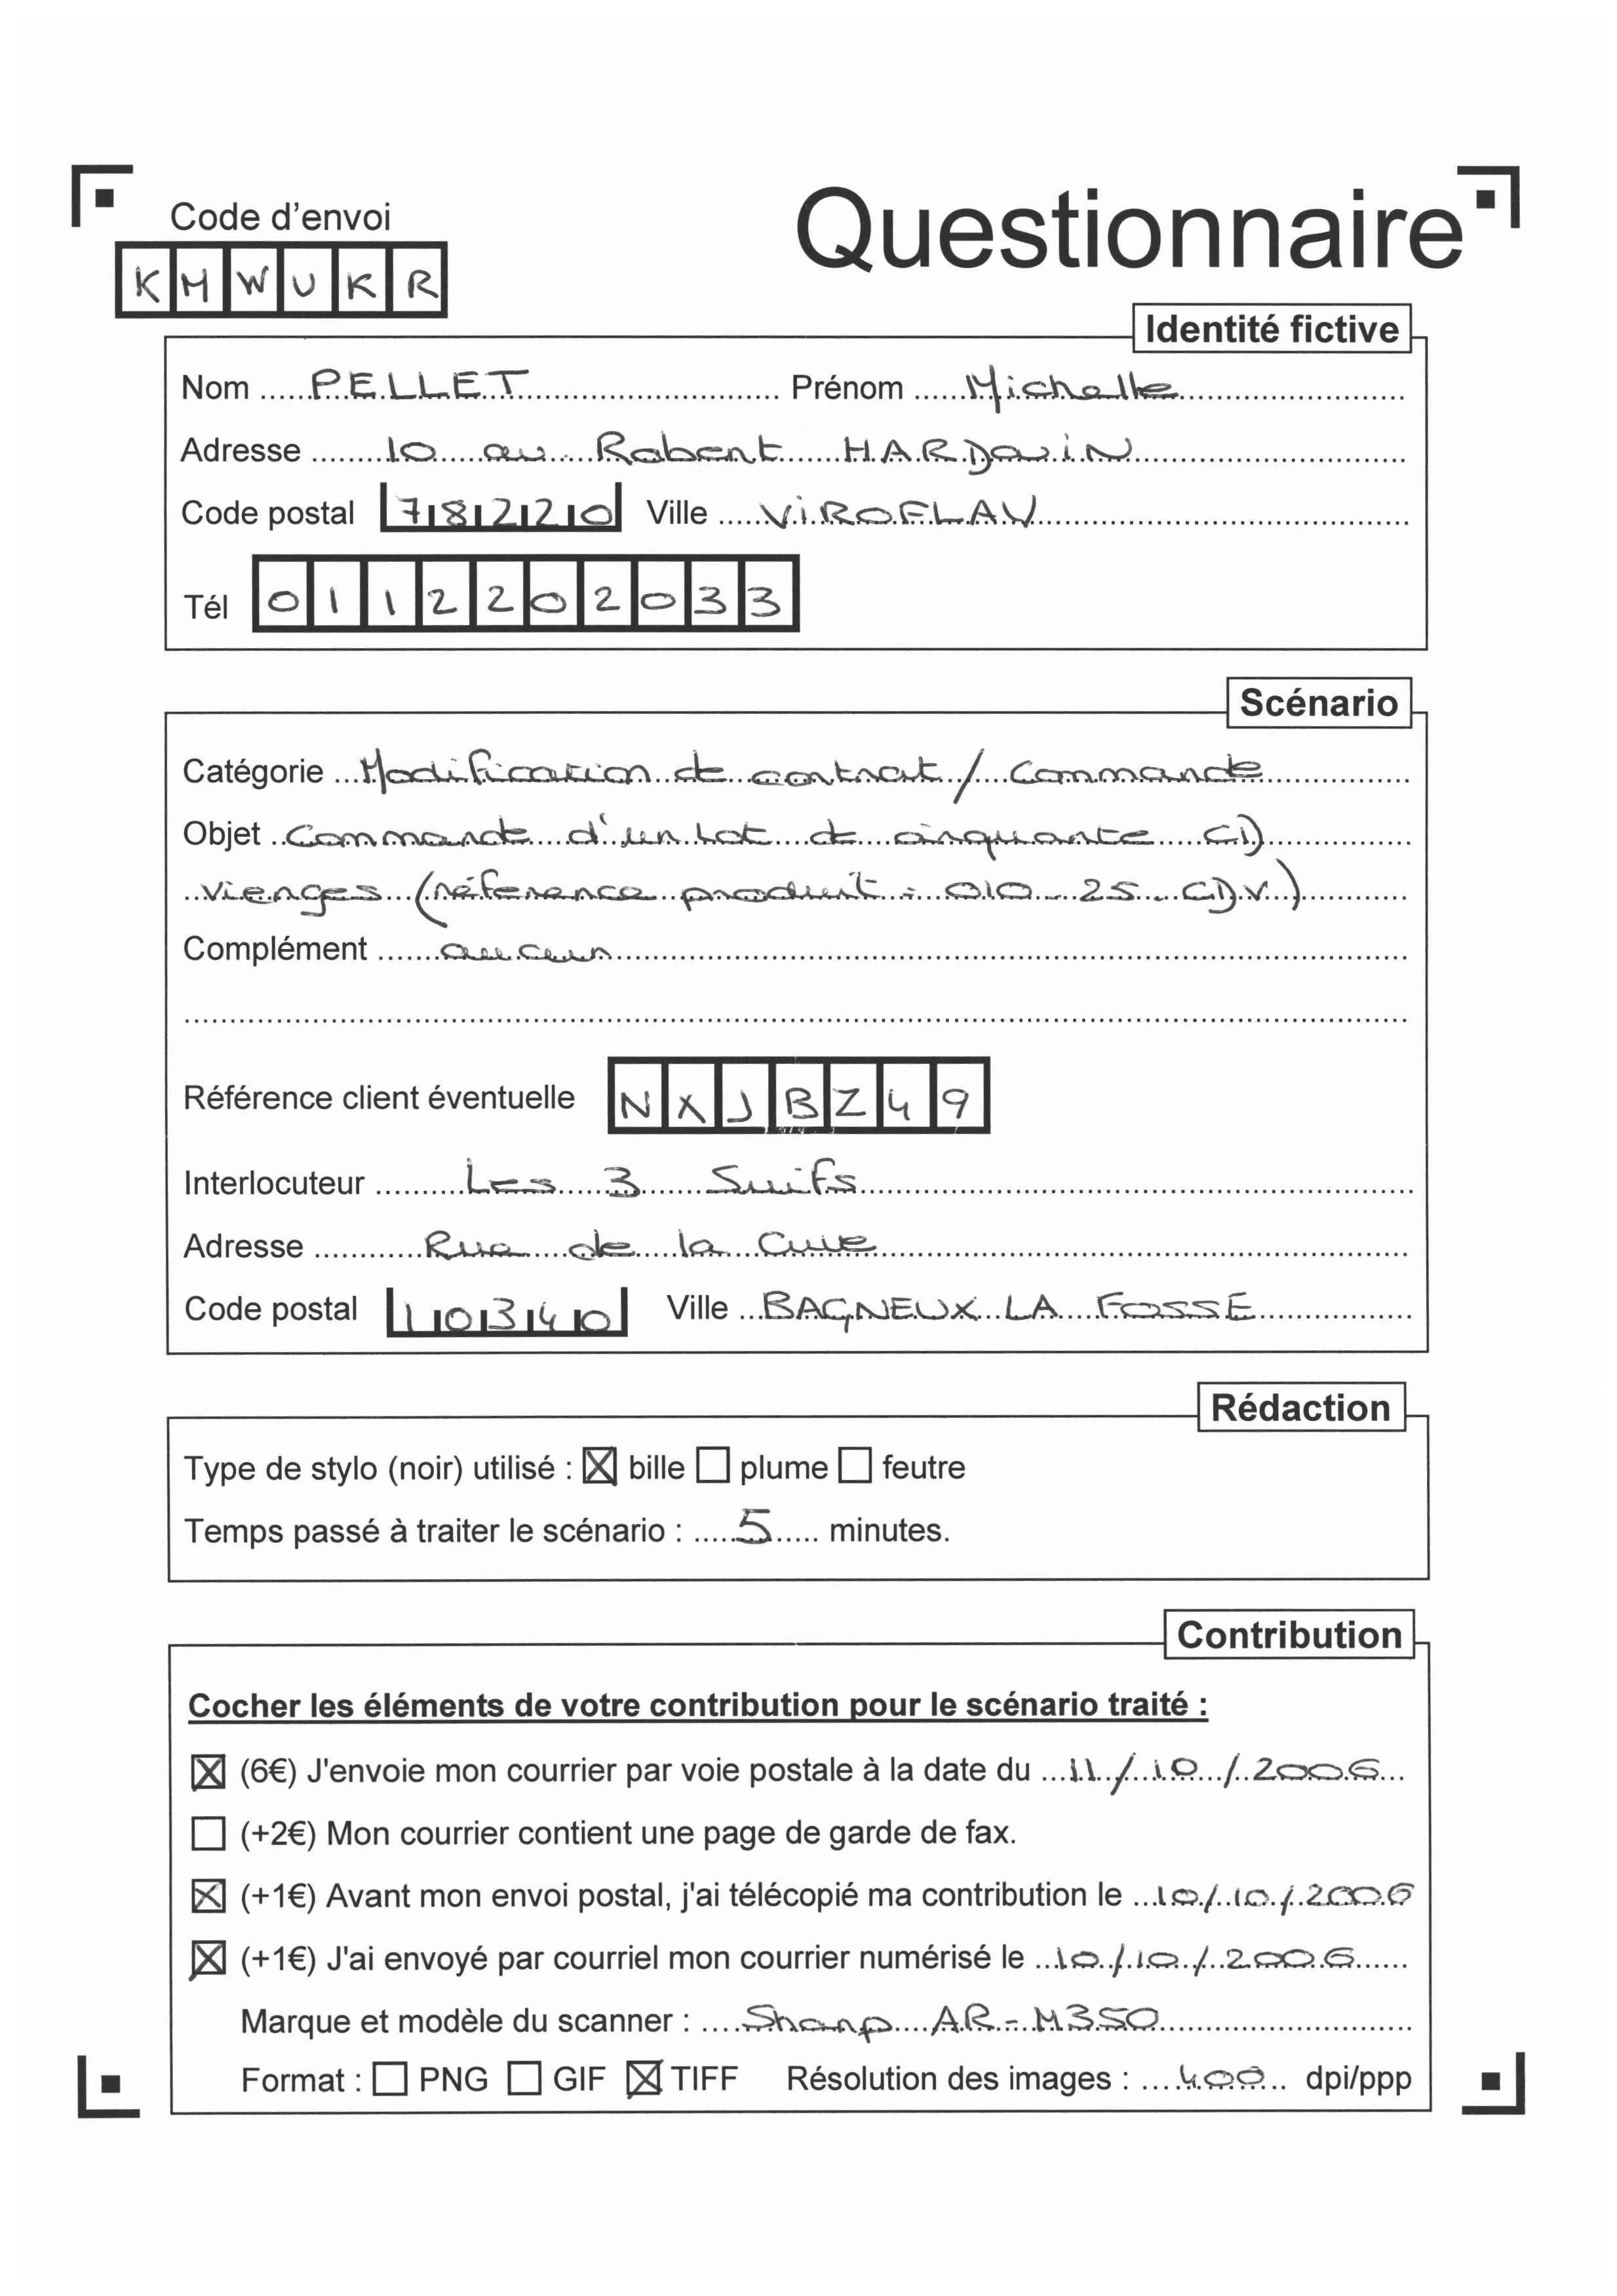 Code d'envoi
Questionnaire
KMWUKR
Identité fictive
Nom PELLET Prénom Michelle
Adresse 10 av. Robert HARDouiN
Code postal 78220 Ville ViROFLAY
Tél 0112202033
Scénario
Catégorie Modification de contrat / Commande
Objet Commande d'un Lot de cinquante CD
vierges (référence produit : 010-25-CDV)
Complément aucun
Référence client éventuelle NXJBZ49
Interlocuteur Les 3 Suifs
Adresse Rue de la Cuve
Code postal 10340 Ville BAGNEUX LA FOSSE
Rédaction
Type de stylo (noir) utilisé : ☒ bille ☐ plume ☐ feutre
Temps passé à traiter le scénario : 5 minutes.
Contribution
Cocher les éléments de votre contribution pour le scénario traité :
☒ (6€) J'envoie mon courrier par voie postale à la date du 11/10/2006
☐ (+2€) Mon courrier contient une page de garde de fax.
☒ (+1€) Avant mon envoi postal, j'ai télécopié ma contribution le 10/10/2006
☒ (+1€) J'ai envoyé par courriel mon courrier numérisé le 10/10/2006
Marque et modèle du scanner : Sharp AR-M350
Format : ☐ PNG ☐ GIF ☒ TIFF Résolution des images : 400 dpi/ppp